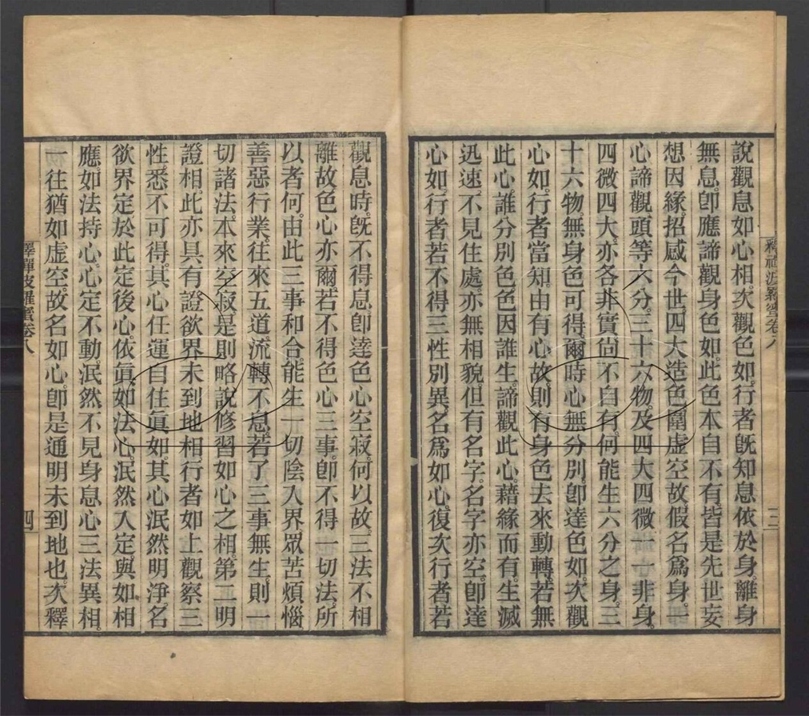 說觀息如心相次觀色如行者旣知息依於身離身
無息卽應諦觀身色如此色本自不有皆是先世妄
想因緣招感今世四大造色圍虛空故假名爲身一
心諦觀頭等六分三十六物及四大四微一一非身
四微四大亦各非實尙不自有何能生六分之身三
十六物無身色可得爾時心無分別卽達色如次觀
心如行者當知由有心故則有身色去來動轉若無
此心誰分別色色因誰生諦觀此心藉緣而有生滅
迅速不見住處亦無相貌但有名字名字亦空卽達
心如行者若不得三性別異名爲如心復次行者若
觀息時旣不得息卽達色心空寂何以故三法不相
離故色心亦爾若不得色心三事卽不得一切法所
以者何由此三事和合能生一切陰入界眾苦煩惱
善惡行業往來五道流轉不息若了三事無生則一
切諸法本來空寂是則略說修習如心之相第二明
證相此亦具有證欲界未到地相行者如上觀察三
性悉不可得其心任運自住眞如其心泯然明淨名
欲界定於此定後心依眞如法心泯然入定與如相
應如法持心心定不動泯然不見身息心三法異相
一往猶如虛空故名如心卽是通明未到地也次釋
釋禪波羅蜜卷八
四